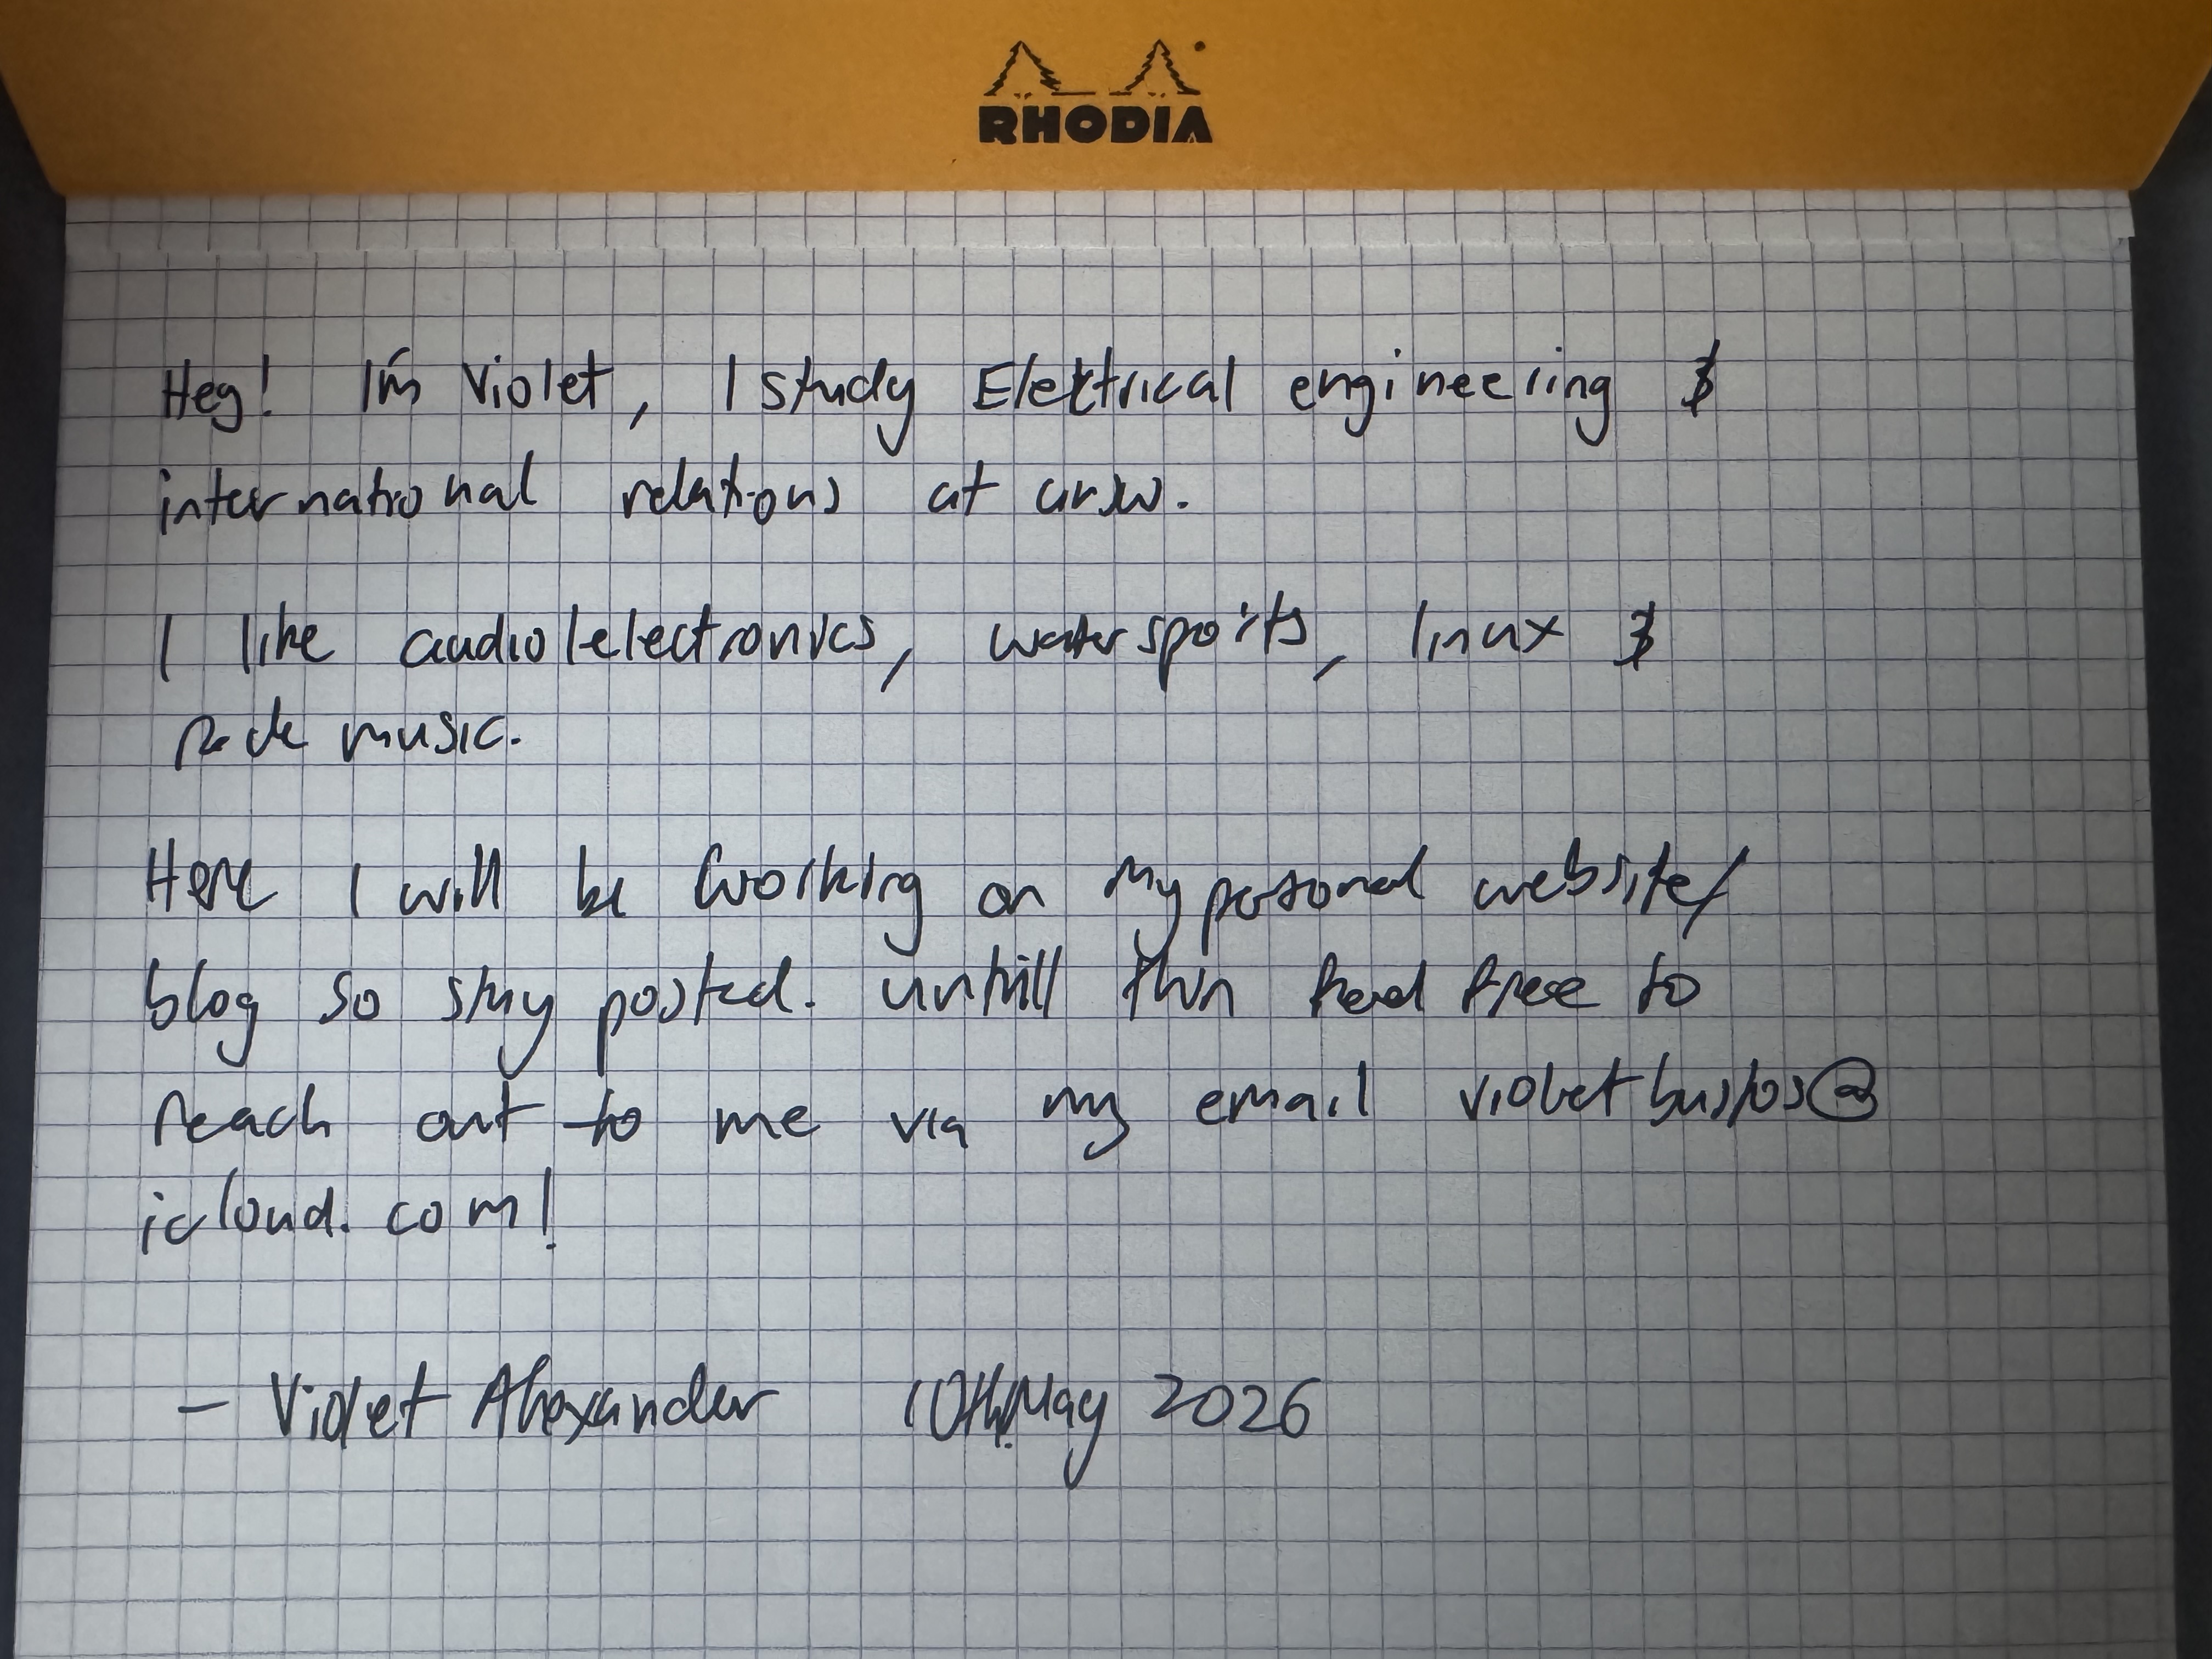 RHODIA
Hey! I'm Violet, I study Elektrical engineering &
international relations at unsw.
I like audio/electronics, watersports, linux &
rock music.
Here I will be working on my personal website/
blog so stay posted. untill then feel free to
reach out to me via my email violetbustos@
icloud.com!
- Violet Alexander 10th May 2026